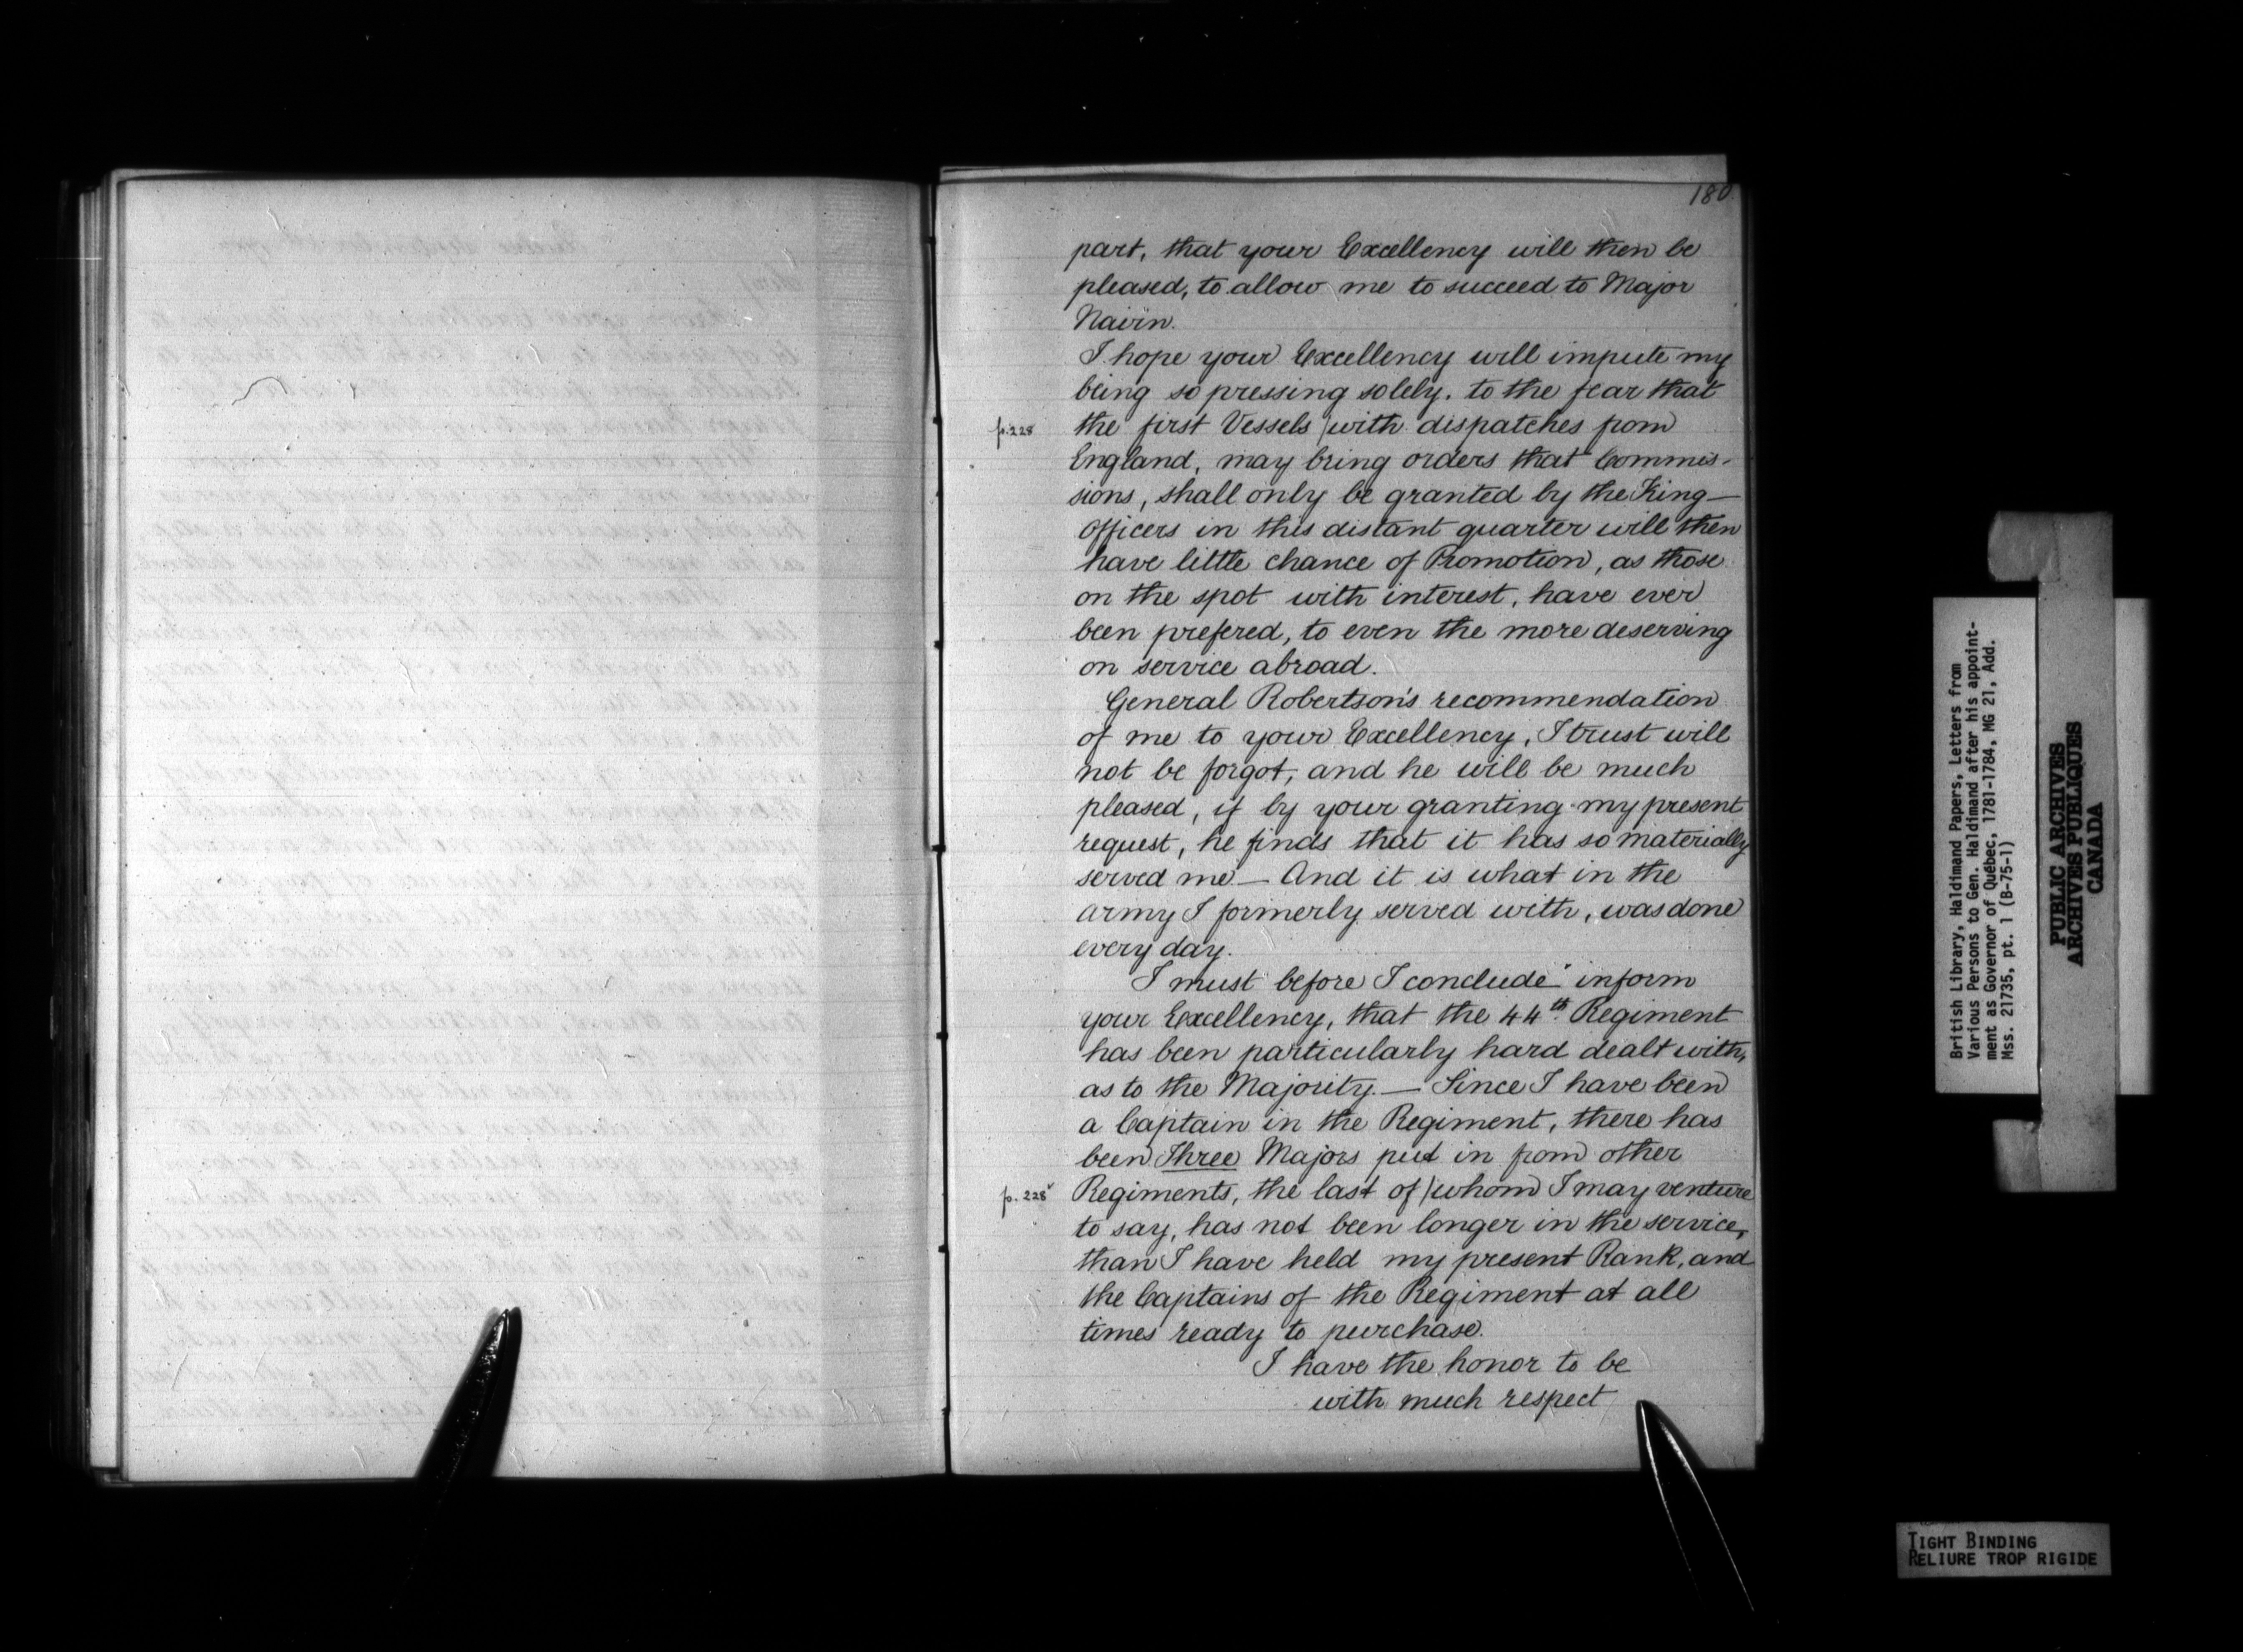 180
part, that your Excellency will then be
pleased, to allow me to succeed to Major
Nairn.
I hope your Excellency will impute my
being so pressing solely. to the fear that
p. 228 the first Vessels /with dispatches from
England, may bring orders that Commis-
sions, shall only be granted by the King—
Officers in this distant quarter will then
have little chance of Promotion, as those
on the spot with interest, have ever
been prefered, to even the more deserving
on service abroad.
General Robertson's recommendation
of me to your Excellency, I trust will
not be forgot, and he will be much
pleased, if by your granting my present
request, he finds that it has so materially
served me — And it is what in the
army I formerly served with, was done
every day.
I must before I conclude inform
your Excellency, that the 44th Regiment
has been particularly hard dealt with,
as to the Majority. — Since I have been
a Captain in the Regiment, there has
been Three Majors put in from other
p. 228v Regiments, the last of /whom I may venture
to say, has not been longer in the service,
than I have held my present Rank, and
the Captains of the Regiment at all
times ready to purchase.
I have the honor to be
with much respect
British Library, Haldimand Papers, Letters from
Various Persons to Gen. Haldimand after his appoint-
ment as Governor of Québec, 1781-1784, MG 21, Add.
Mss. 21735, pt. 1 (B-75-1)
PUBLIC ARCHIVES
ARCHIVES PUBLIQUES
CANADA
TIGHT BINDING
RELIURE TROP RIGIDE